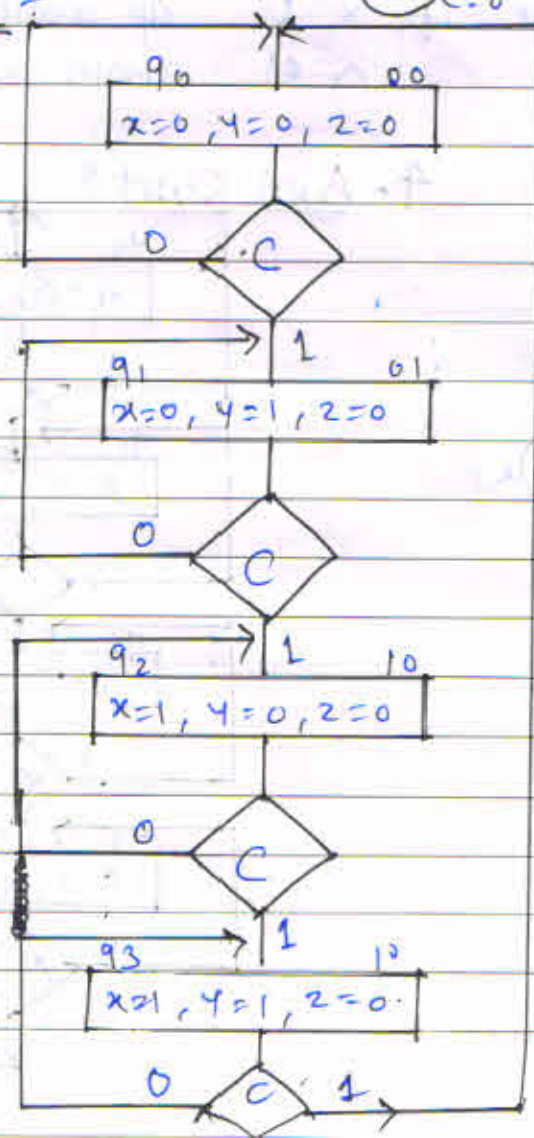 q0 00
x=0, y=0, z=0
0 C
1
q1 01
x=0, y=1, z=0
0 C
1
q2 10
x=1, y=0, z=0
0 C
1
q3 10
x=1, y=1, z=0
0 C 1